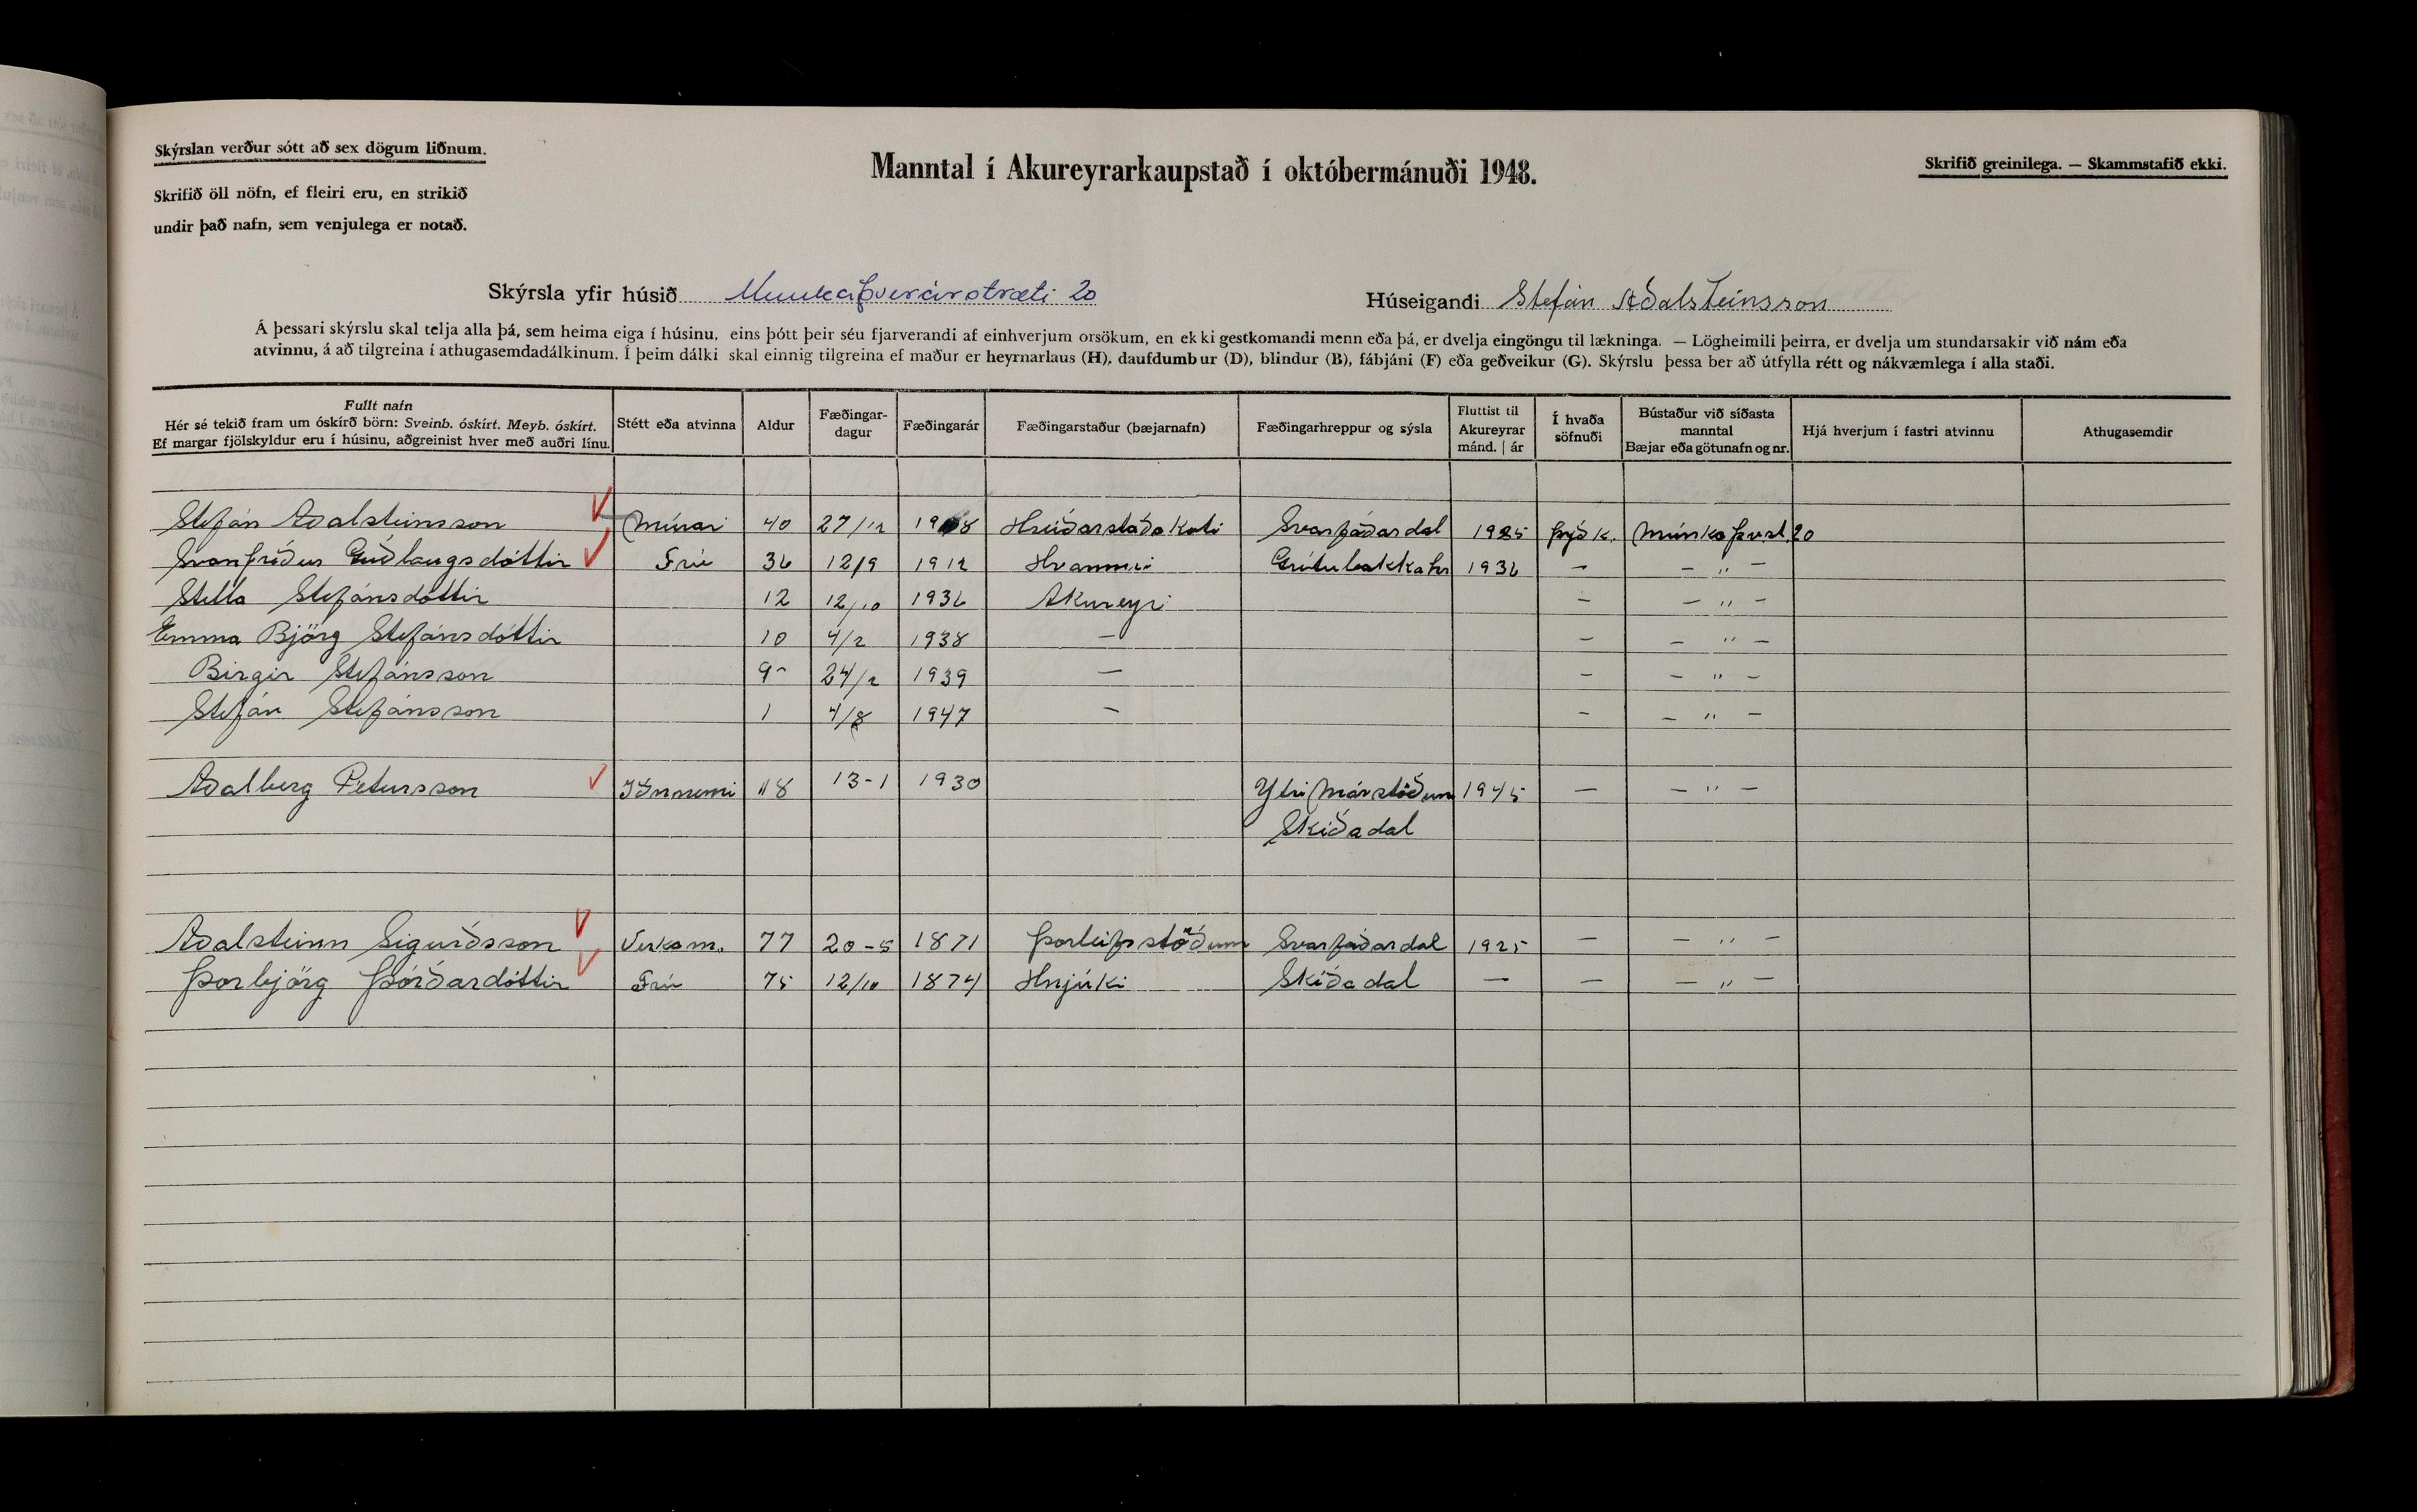 Skýrslan verður sótt að sex dögum liðnum.
Skrifið öll nöfn, ef fleiri eru, en strikið
undir það nafn, sem venjulega er notað.
Manntal í Akureyrarkaupstað í októbermánuði 1948.
Skrifið greinilega. — Skammstafið ekki.
Skýrsla yfir húsið Munkaþverárstræti 20
Húseigandi Stefán Aðalsteinsson
Á þessari skýrslu skal telja alla þá, sem heima eiga í húsinu, eins þótt þeir séu fjarverandi af einhverjum orsökum, en ekki gestkomandi menn eða þá, er dvelja eingöngu til lækninga. — Lögheimili þeirra, er dvelja um stundarsakir við nám eða
atvinnu, á að tilgreina í athugasemdadálkinum. Í þeim dálki skal einnig tilgreina ef maður er heyrnarlaus (H), daufdumbur (D), blindur (B), fábjáni (F) eða geðveikur (G). Skýrslu þessa ber að útfylla rétt og nákvæmlega í alla staði.
Fullt nafn
Hér sé tekið fram um óskírð börn: Sveinb. óskírt. Meyb. óskírt.
Ef margar fjölskyldur eru í húsinu, aðgreinist hver með auðri línu.
Stétt eða atvinna
Aldur
Fæðingar-
dagur
Fæðingarár
Fæðingarstaður (bæjarnafn)
Fæðingarhreppur og sýsla
Fluttist til
Akureyrar
mánd. | ár
Í hvaða
söfnuði
Bústaður við síðasta
manntal
Bæjar eða götunafn og nr.
Hjá hverjum í fastri atvinnu
Athugasemdir
Stefán Aðalsteinsson Múrari 40 27/12 1908 Hreiðarstaðakoti Svarfaðardal 1925 Þjóðk. Múnkaþv.st. 20
Svanfríður Guðlaugsdóttir Frú 36 12/9 1912 Hvammi Grítubakkahr 1936 — — " —
Stella Stefánsdóttir 12 12/10 1936 Akureyri — — " —
Emma Björg Stefánsdóttir 10 4/2 1938 — — — " —
Birgir Stefánsson 9 24/2 1939 — — — " —
Stefán Stefánsson 1 4/8 1947 — — — " —
Aðalberg Pétursson Iðnnemi 18 13-1 1930 Ytri Márstöðum 1945 — — " —
Skíðadal
Aðalsteinn Sigurðsson Verkam. 77 20-5 1871 Þorleifsstöðum Svarfaðardal 1925 — — " —
Þorbjörg Þórðardóttir Frú 75 12/10 1874 Hnjúki Skíðadal — — — " —